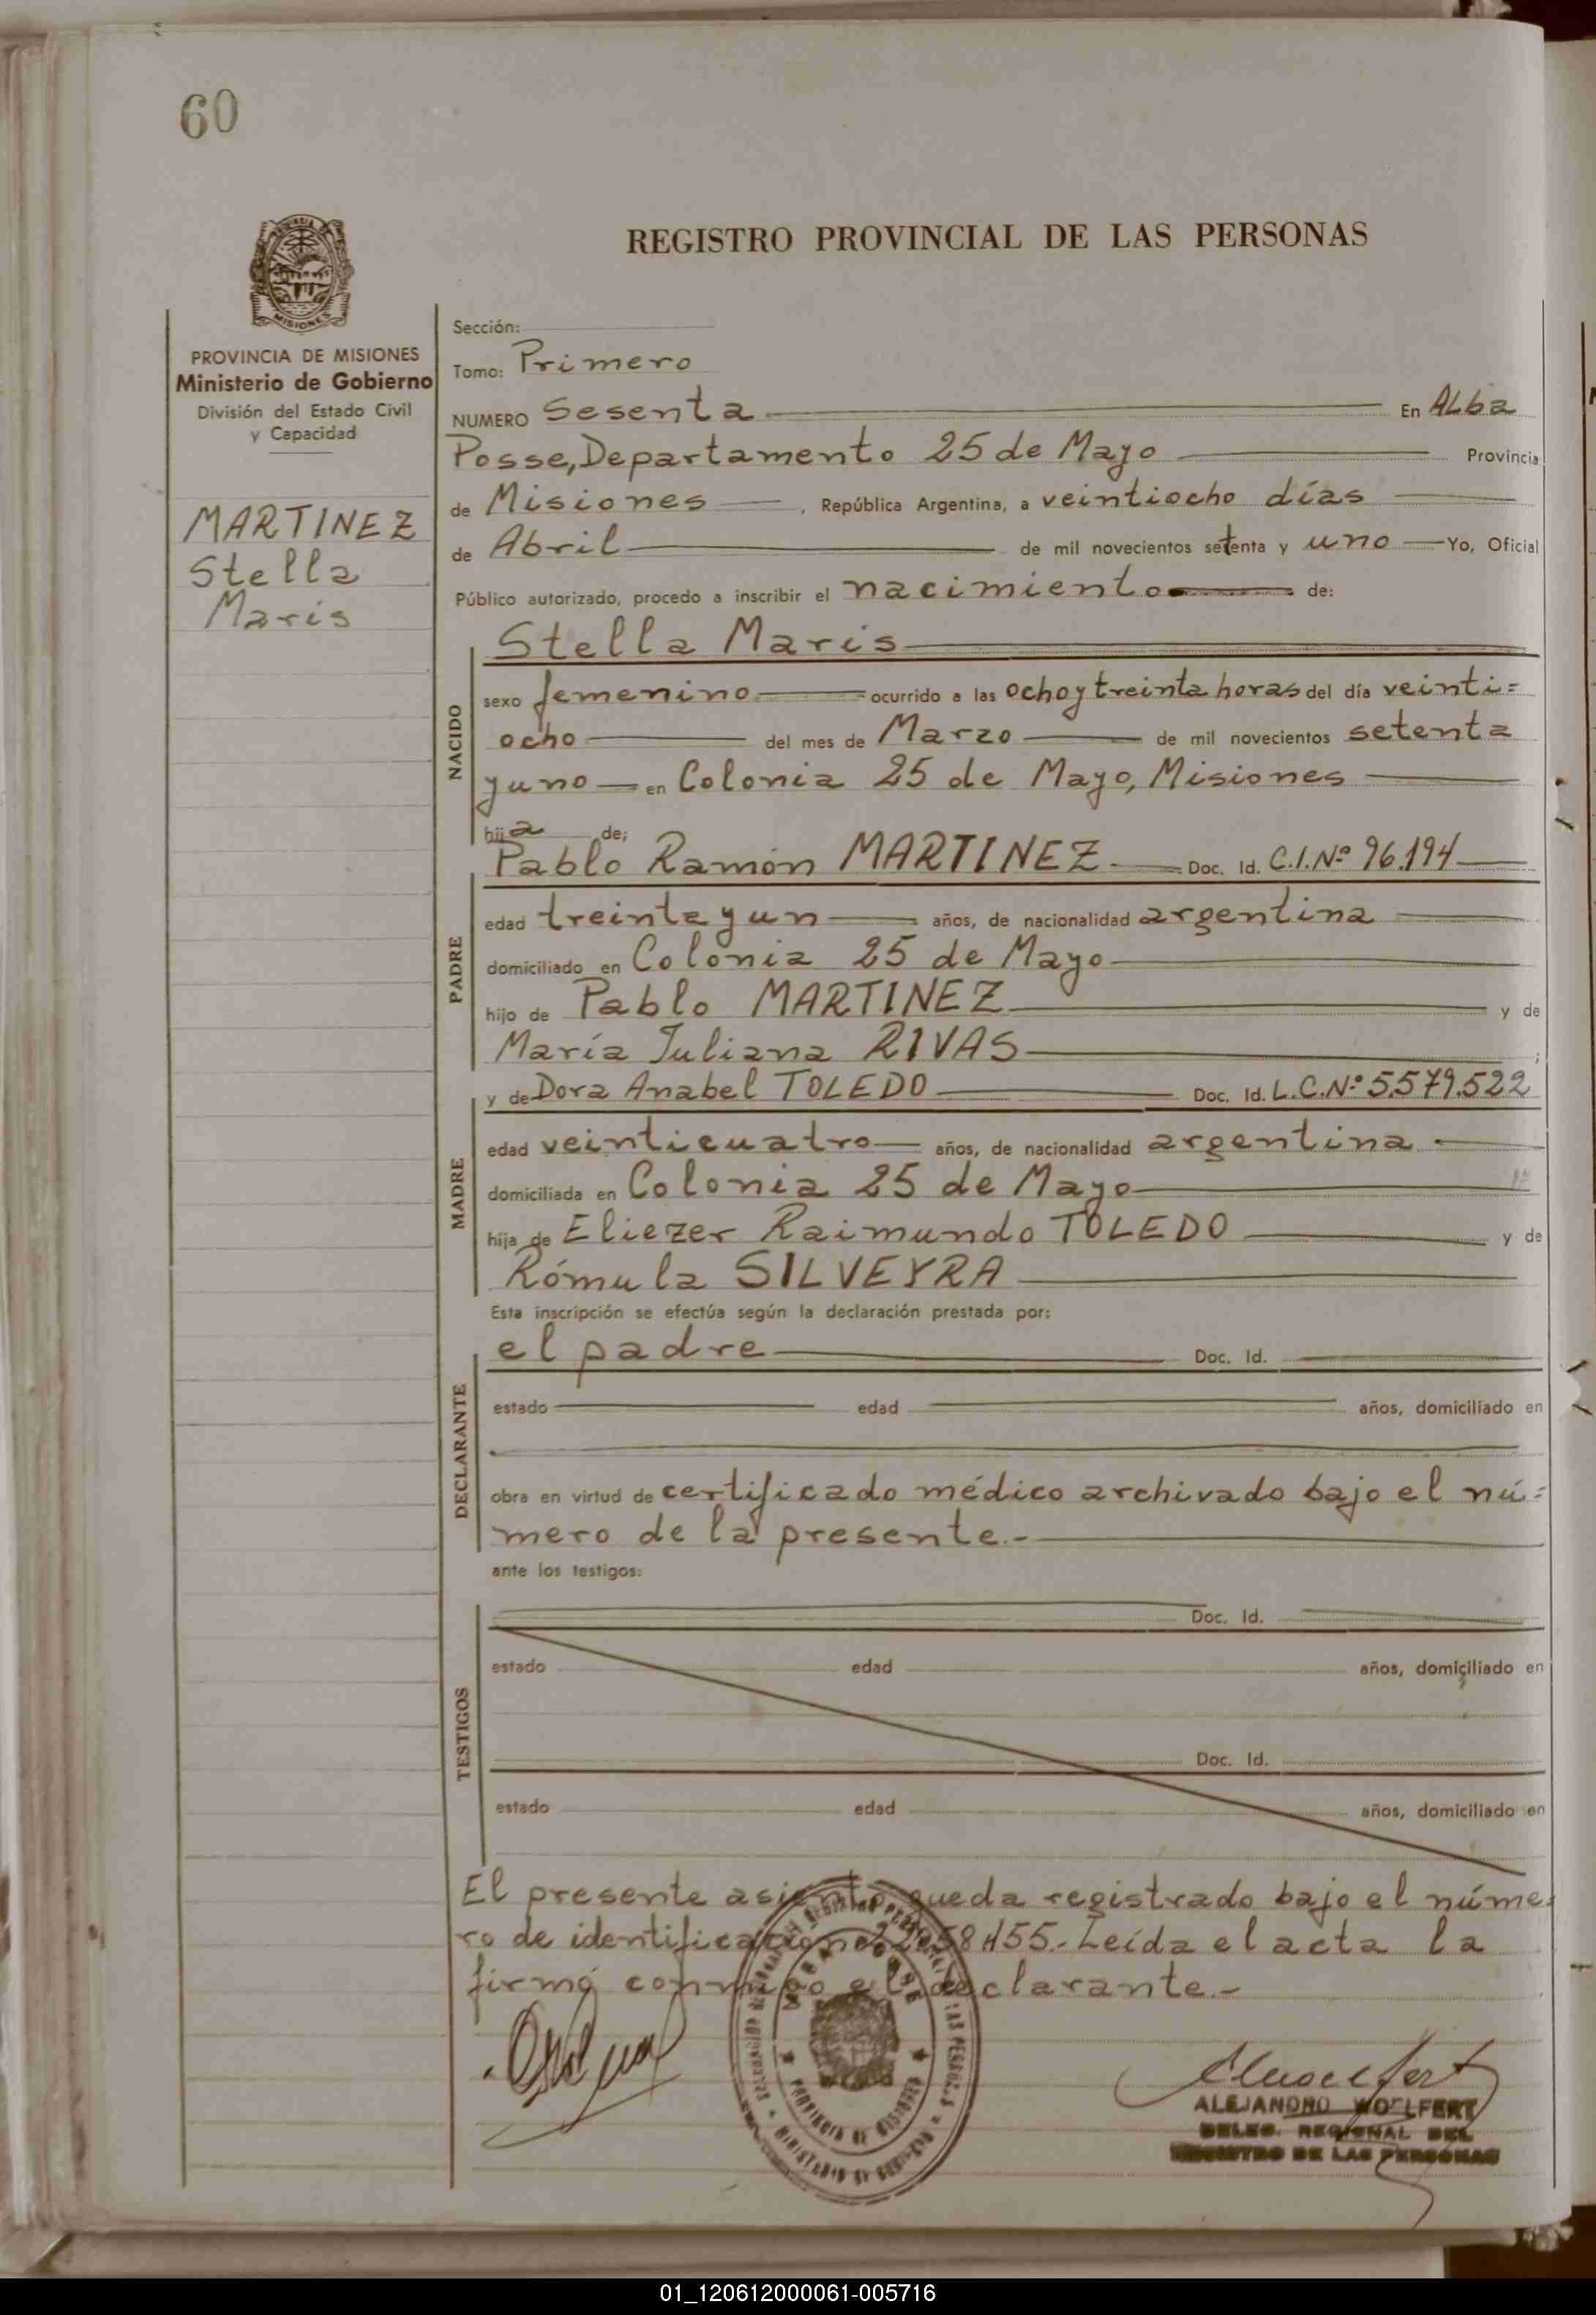 60
REGISTRO PROVINCIAL DE LAS PERSONAS
MISIONES
PROVINCIA DE MISIONES
Ministerio de Gobierno
División del Estado Civil
y Capacidad
MARTINEZ
Stella
Maris
Sección:
Tomo: Primero
NUMERO Sesenta En Alba
Posse, Departamento 25 de Mayo Provincia
de Misiones, República Argentina, a veintiocho días
de Abril de mil novecientos setenta y uno Yo, Oficial
Público autorizado, procedo a inscribir el nacimiento de:
NACIDO
Stella Maris
sexo femenino ocurrido a las ocho y treinta horas del día veinti=
ocho del mes de Marzo de mil novecientos setenta
y uno en Colonia 25 de Mayo, Misiones
hija de;
PADRE
Pablo Ramón MARTINEZ Doc. Id. C.I. Nº 96.194
edad treinta y un años, de nacionalidad argentina
domiciliado en Colonia 25 de Mayo
hijo de Pablo MARTINEZ y de
María Juliana RIVAS ;
MADRE
y de Dora Anabel TOLEDO Doc. Id. L.C. Nº 5.579.522
edad veinticuatro años, de nacionalidad argentina
domiciliada en Colonia 25 de Mayo
hija de Eliezer Raimundo TOLEDO y de
Rómula SILVEYRA
Esta inscripción se efectúa según la declaración prestada por:
DECLARANTE
el padre Doc. Id.
estado edad años, domiciliado en
obra en virtud de certificado médico archivado bajo el nú=
mero de la presente.-
ante los testigos:
TESTIGOS
Doc. Id.
estado edad años, domiciliado en
Doc. Id.
estado edad años, domiciliado en
El presente asiento queda registrado bajo el núme
ro de identificación Leída el acta la
firmó conmigo el declarante.-
PROVINCIA DE MISIONES
ALEJANDRO WOELFERT
DELEG. REGIONAL DEL
REGISTRO DE LAS PERSONAS
01_120612000061-005716